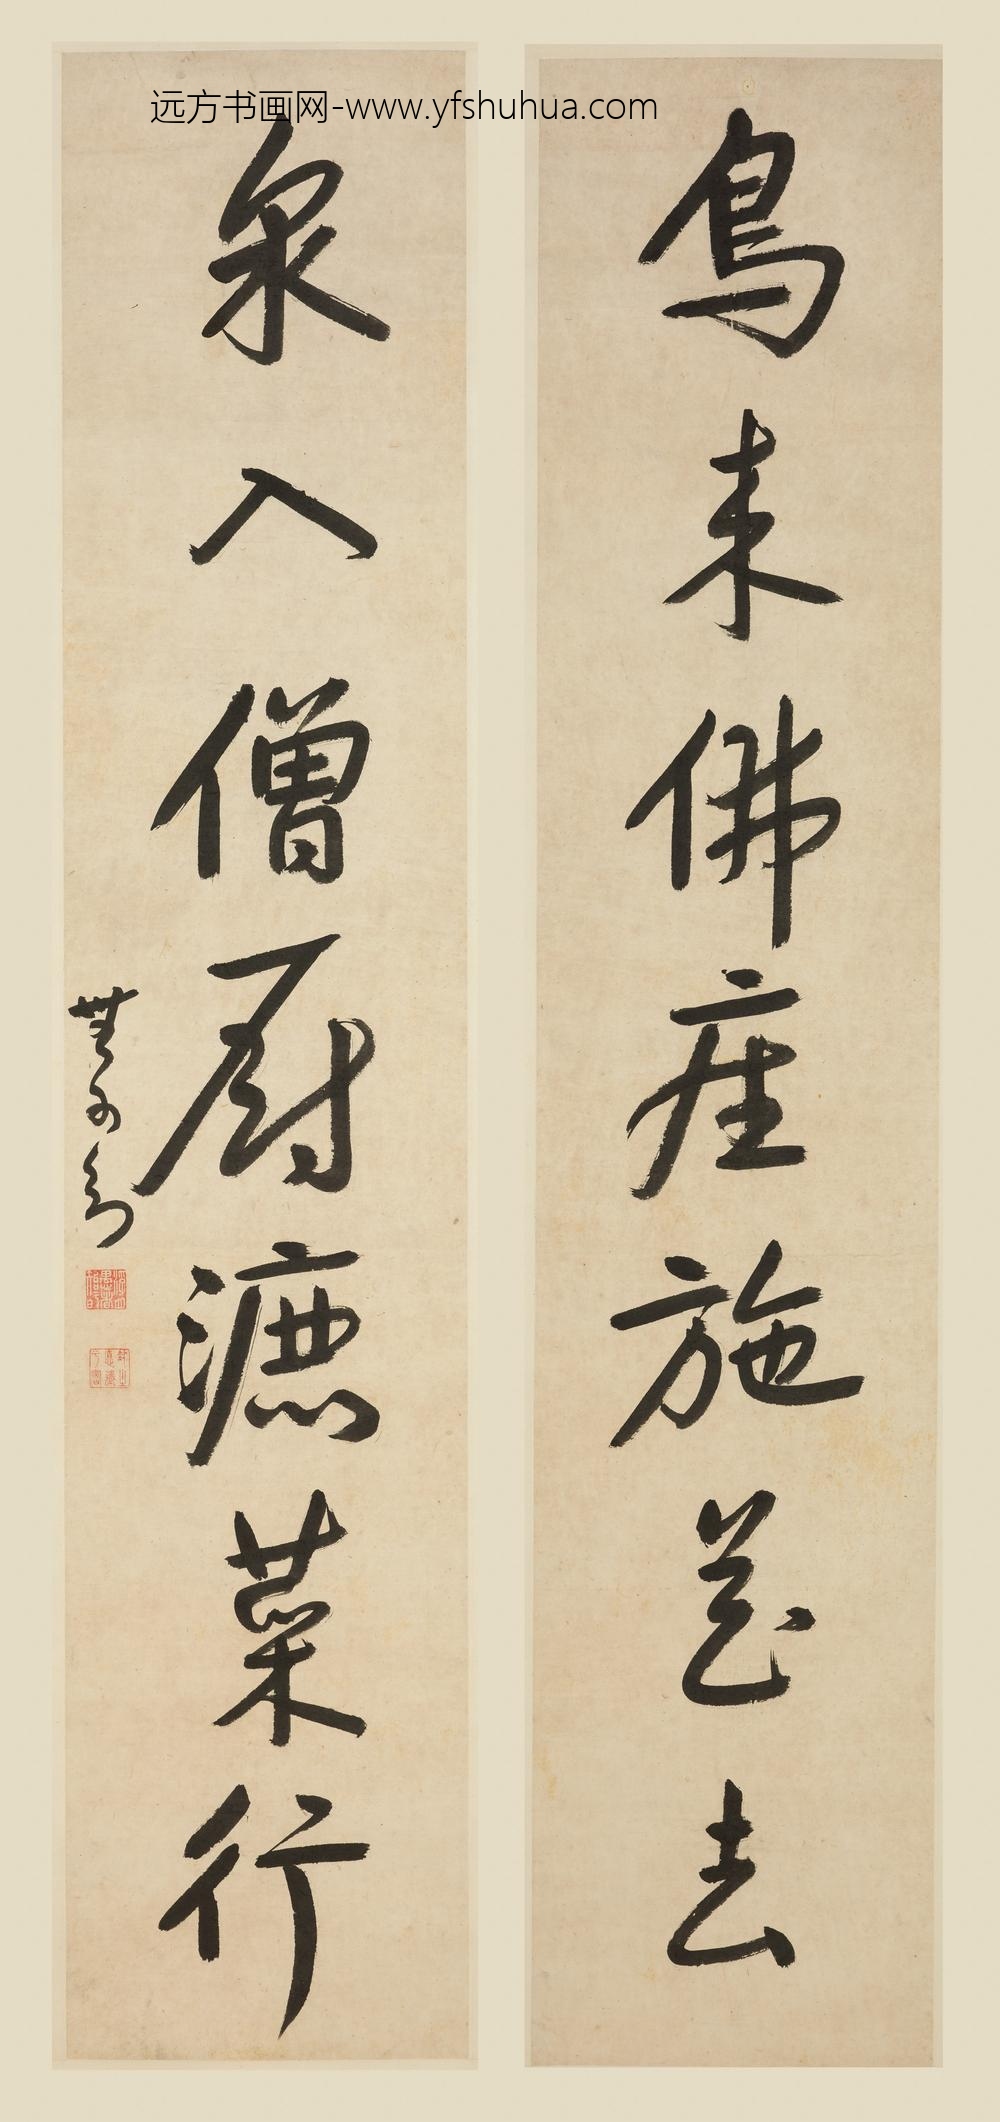 远方书画网-www.yfshuhua.com
鳥来佛座施花去
泉入僧厨漉菜行